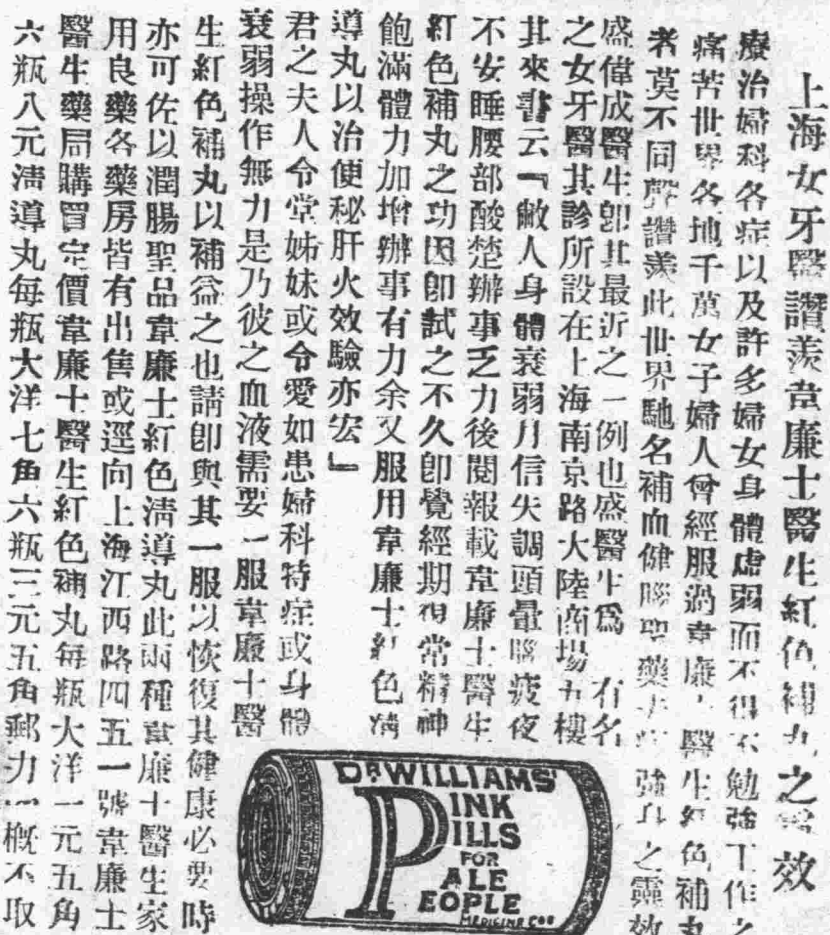 上海女牙醫讚羨韋廉士醫生紅色補丸之效
療治婦科各症以及許多婦女身體虛弱而不得不勉強工作之
痛苦世界各地千萬女子婦人曾經服過韋廉士醫生紅色補丸
者莫不同聲讚羨此世界馳名補血健腦聖藥強身之靈效
盛偉成醫生卽其最近之一例也盛醫生爲 有名
之女牙醫其診所設在上海南京路大陸商場五樓
其來書云『敝人身體衰弱月信失調頭暈腦疲夜
不安睡腰部酸楚辦事乏力後閱報載韋廉士醫生
紅色補丸之功因卽試之不久卽覺經期復常精神
飽滿體力加增辦事有力余又服用韋廉士紅色清
導丸以治便秘肝火效驗亦宏』
君之夫人令堂姊妹或令愛如患婦科特症或身體
衰弱操作無力是乃彼之血液需要一服韋廉士醫
生紅色補丸以補益之也請卽與其一服以恢復其健康必要時
亦可佐以潤腸聖品韋廉士紅色清導丸此兩種韋廉士醫生家
用良藥各藥房皆有出售或逕向上海江西路四五一號韋廉士
醫生藥局購買定價韋廉士醫生紅色補丸每瓶大洋一元五角
六瓶八元清導丸每瓶大洋七角六瓶三元五角郵力一概不取
DR WILLIAMS'
PINK
PILLS
FOR
PALE
PEOPLE
MEDICINE COO